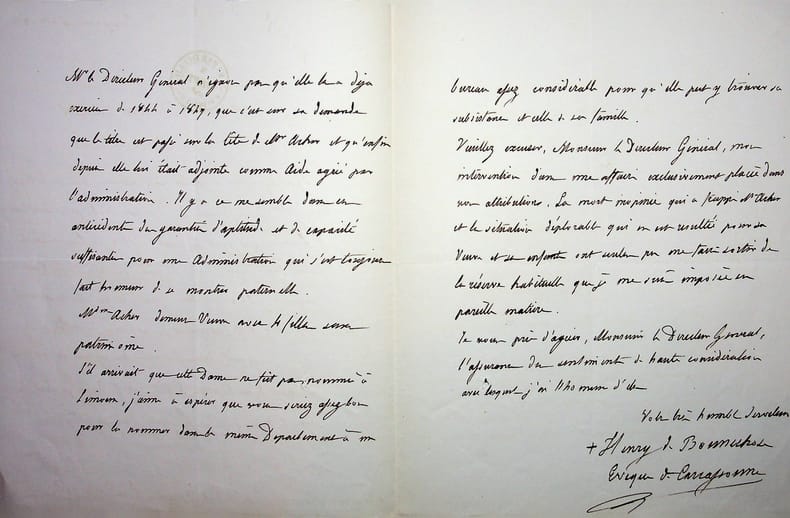 Mr le Directeur Général n'ignore pas qu'elle l'a déja
exercée de 1844 à 1849, que c'est sur sa demande
que le titre est passé sur la tête de Mr Acher et qu'enfin
depuis elle lui était adjointe comme Aide agréé par
l'administration. Il y a ce me semble dans ces
antécédents des garanties d'aptitude et de capacité
suffisantes pour une Administration qui s'est toujours
fait honneur de se montrer paternelle.
Mdme Acher demeure Veuve avec 4 filles sans
patrimoine.
S'il arrivait que cette Dame ne fût pas nommée à
Limoux, j'aime à espérer que vous seriez assez bon
pour la nommer dans le même Département à un
bureau assez considérable pour qu'elle put y trouver sa
subsistance et celle de sa famille.
Veuillez excuser, Monsieur le Directeur Général, mon
intervention dans une affaire exclusivement placée dans
vos attributions. La mort inopinée qui a frappé Mr Acher
et la situation déplorable qui en est resultée pour sa
Veuve et ses enfants ont seules pu me faire sortir de
la réserve habituelle que je me suis imposée en
pareille matière.
Je vous prie d'agréer, Monsieur le Directeur Général,
l'assurance des sentiments de haute considération
avec lesquels j'ai l'honneur d'être
Votre très humble Serviteur
+ Henry de Bonnechose
Evêque de Carcassonne